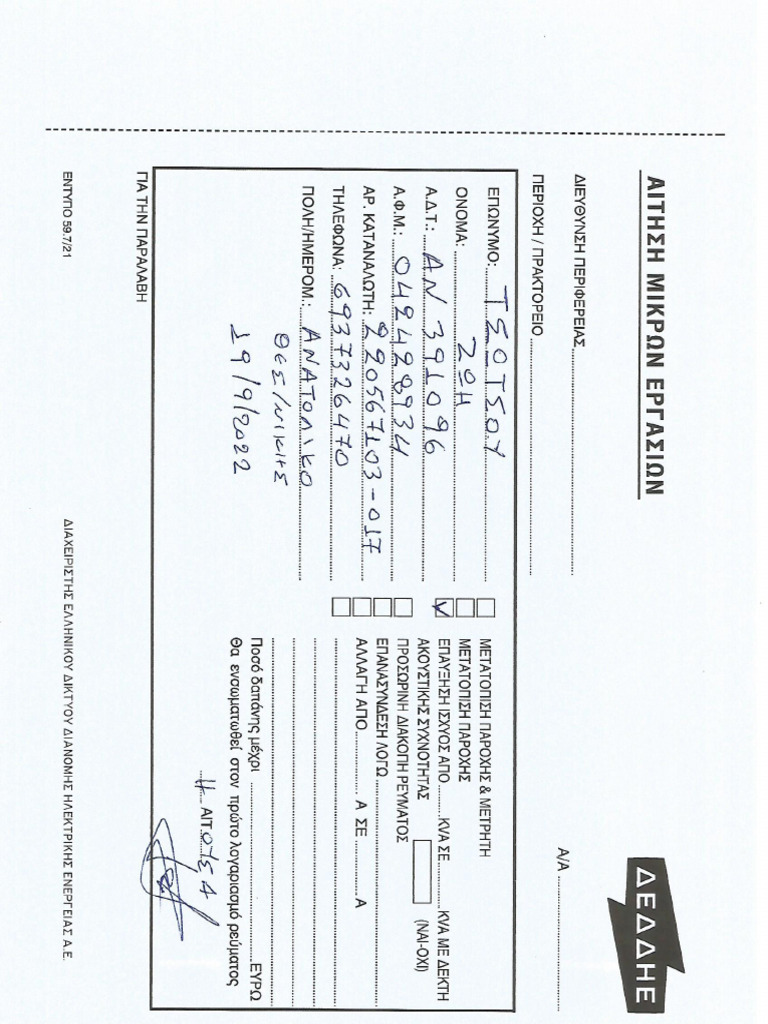 ΑΙΤΗΣΗ ΜΙΚΡΩΝ ΕΡΓΑΣΙΩΝ
ΔΕΔΔΗΕ
ΔΙΕΥΘΥΝΣΗ ΠΕΡΙΦΕΡΕΙΑΣ
ΠΕΡΙΟΧΗ / ΠΡΑΚΤΟΡΕΙΟ
Α/Α
ΕΠΩΝΥΜΟ: ΤΣΩΤΣΟΥ
ΟΝΟΜΑ: ΖΩΗ
Α.Δ.Τ.: ΑΝ 391096
Α.Φ.Μ.: 042428934
ΑΡ. ΚΑΤΑΝΑΛΩΤΗ: 220567103-017
ΤΗΛΕΦΩΝΑ: 6937326470
ΠΟΛΗ/ΗΜΕΡΟΜ.: ΑΝΑΤΟΛΙΚΟ
ΘΕΣ/ΝΙΚΗΣ
19/9/2022
ΜΕΤΑΤΟΠΙΣΗ ΠΑΡΟΧΗΣ & ΜΕΤΡΗΤΗ
ΜΕΤΑΤΟΠΙΣΗ ΠΑΡΟΧΗΣ
ΕΠΑΥΞΗΣΗ ΙΣΧΥΟΣ ΑΠΟ ......... KVA ΣΕ ......... KVA ΜΕ ΔΕΚΤΗ
ΑΚΟΥΣΤΙΚΗΣ ΣΥΧΝΟΤΗΤΑΣ (ΝΑΙ-ΟΧΙ)
ΠΡΟΣΩΡΙΝΗ ΔΙΑΚΟΠΗ ΡΕΥΜΑΤΟΣ
ΕΠΑΝΑΣΥΝΔΕΣΗ ΛΟΓΩ
ΑΛΛΑΓΗ ΑΠΟ ............ Α ΣΕ ............ Α
Ποσό δαπάνης μέχρι ............ ΕΥΡΩ
Θα ενσωματωθεί στον πρώτο λογαριασμό ρεύματος
Η ΑΙΤΟΥΣΑ
ΓΙΑ ΤΗΝ ΠΑΡΑΛΑΒΗ
ΕΝΤΥΠΟ 59.7/21
ΔΙΑΧΕΙΡΙΣΤΗΣ ΕΛΛΗΝΙΚΟΥ ΔΙΚΤΥΟΥ ΔΙΑΝΟΜΗΣ ΗΛΕΚΤΡΙΚΗΣ ΕΝΕΡΓΕΙΑΣ Α.Ε.